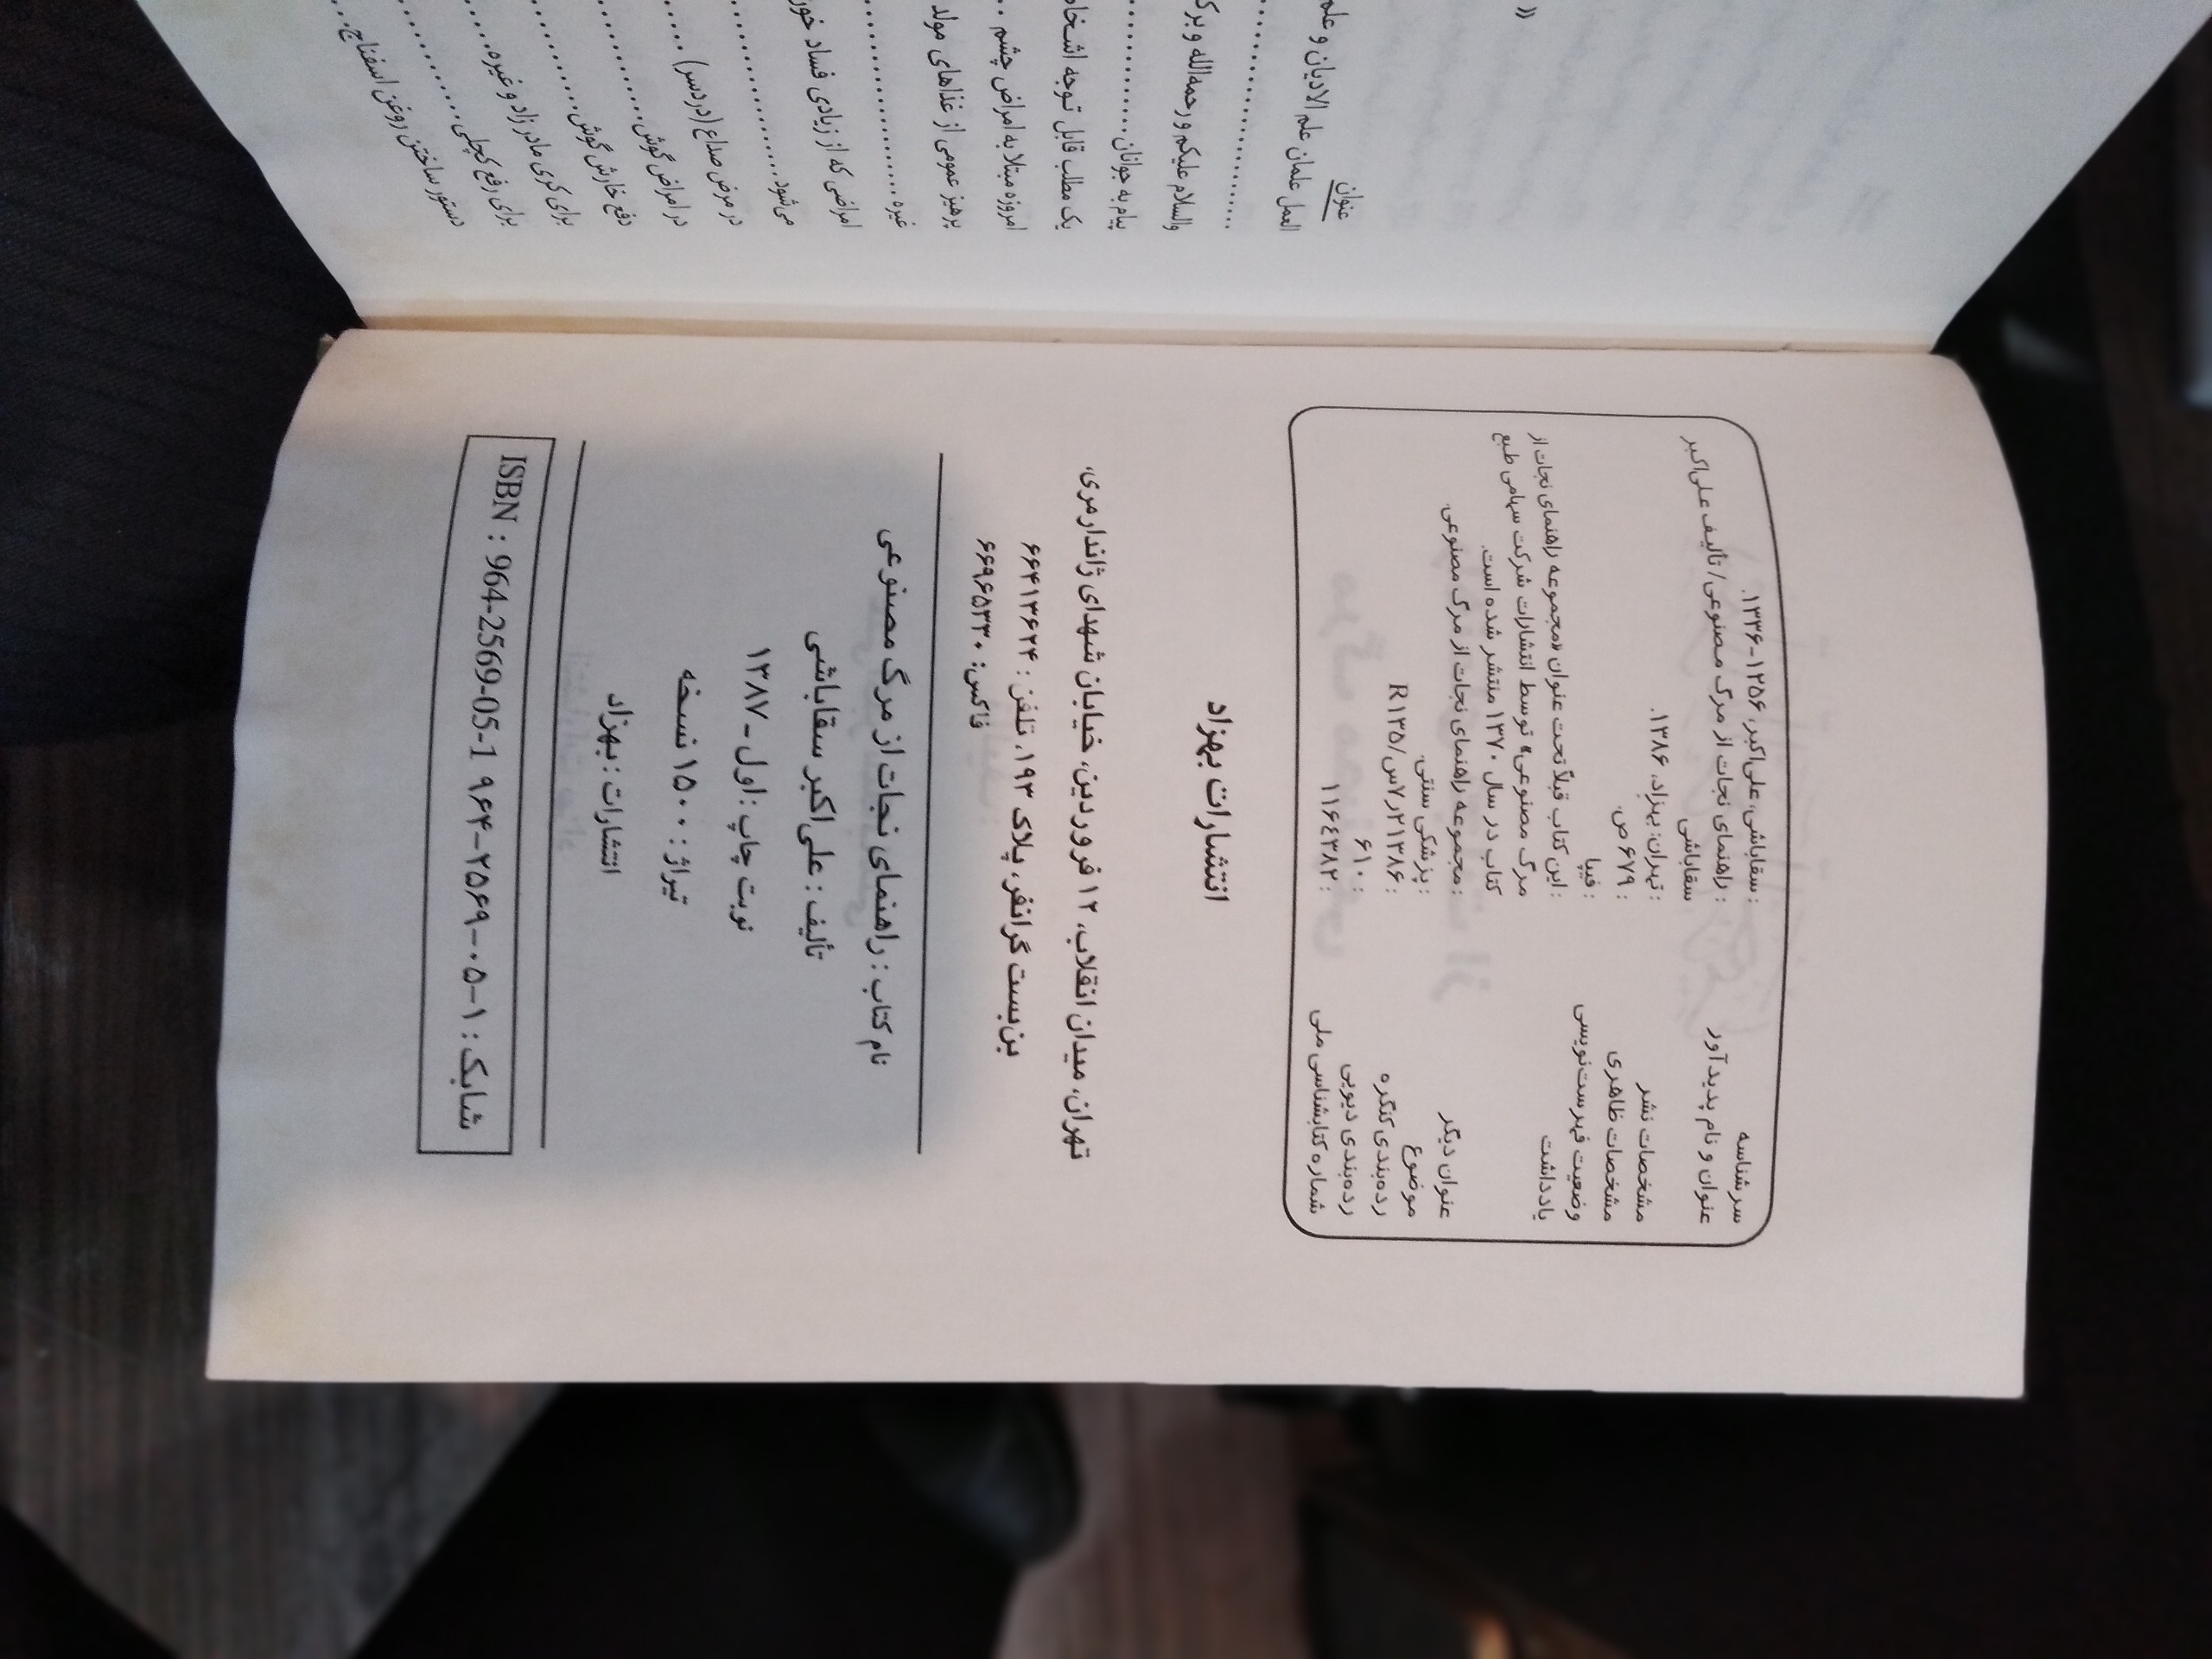 سرشناسه : سقاباشی، علی‌اکبر، ۱۲۵۶-۱۳۳۶.
عنوان و نام پدیدآور : راهنمای نجات از مرگ مصنوعی/ تألیف علی‌اکبر
سقاباشی
مشخصات نشر : تهران: بهزاد، ۱۳۸۶.
مشخصات ظاهری : ۶۷۹ ص.
وضعیت فهرست‌نویسی : فیپا
یادداشت : این کتاب قبلاً تحت عنوان «مجموعه راهنمای نجات از
مرگ مصنوعی» توسط انتشارات شرکت سهامی طبع
کتاب در سال ۱۳۷۰ منتشر شده است.
عنوان دیگر : مجموعه راهنمای نجات از مرگ مصنوعی.
موضوع : پزشکی سنتی.
رده‌بندی کنگره : ۲۱۳۸۶ر۷س/R۱۳۵
رده‌بندی دیویی : ۶۱۰
شماره کتابشناسی ملی : ۱۱۶٤۳۸۲
انتشارات بهزاد
تهران، میدان انقلاب، ۱۲ فروردین، خیابان شهدای ژاندارمری،
بن‌بست گرانفر، پلاک ۱۹۳، تلفن : ۶۶۴۱۳۶۲۴
فاکس: ۶۶۹۶۵۳۳۰
نام کتاب : راهنمای نجات از مرگ مصنوعی
تألیف : علی‌اکبر سقاباشی
نوبت چاپ : اول ـ ۱۳۸۷
تیراژ : ۱۵۰۰ نسخه
انتشارات : بهزاد
شابک : ۱-۰۵-۲۵۶۹-۹۶۴ ISBN : 964-2569-05-1
»
عنوان
العمل علمان علم الادیان و علم
....................
والسلام علیکم و رحمه‌الله و برک
پیام به جوانان....................
یک مطلب قابل توجه اشخا
امروزه مبتلا به امراض چشم ..
پرهیز عمومی از غذاهای مولد
غیره....................
امراضی که از زیادی فساد خور
می‌شود....................
در مرض صداع (دردسر) .....
در امراض گوش....................
دفع خارش گوش....................
برای کری مادرزاد و غیره.....
برای رفع کچلی....................
دستور ساختن روغن اسفناج....